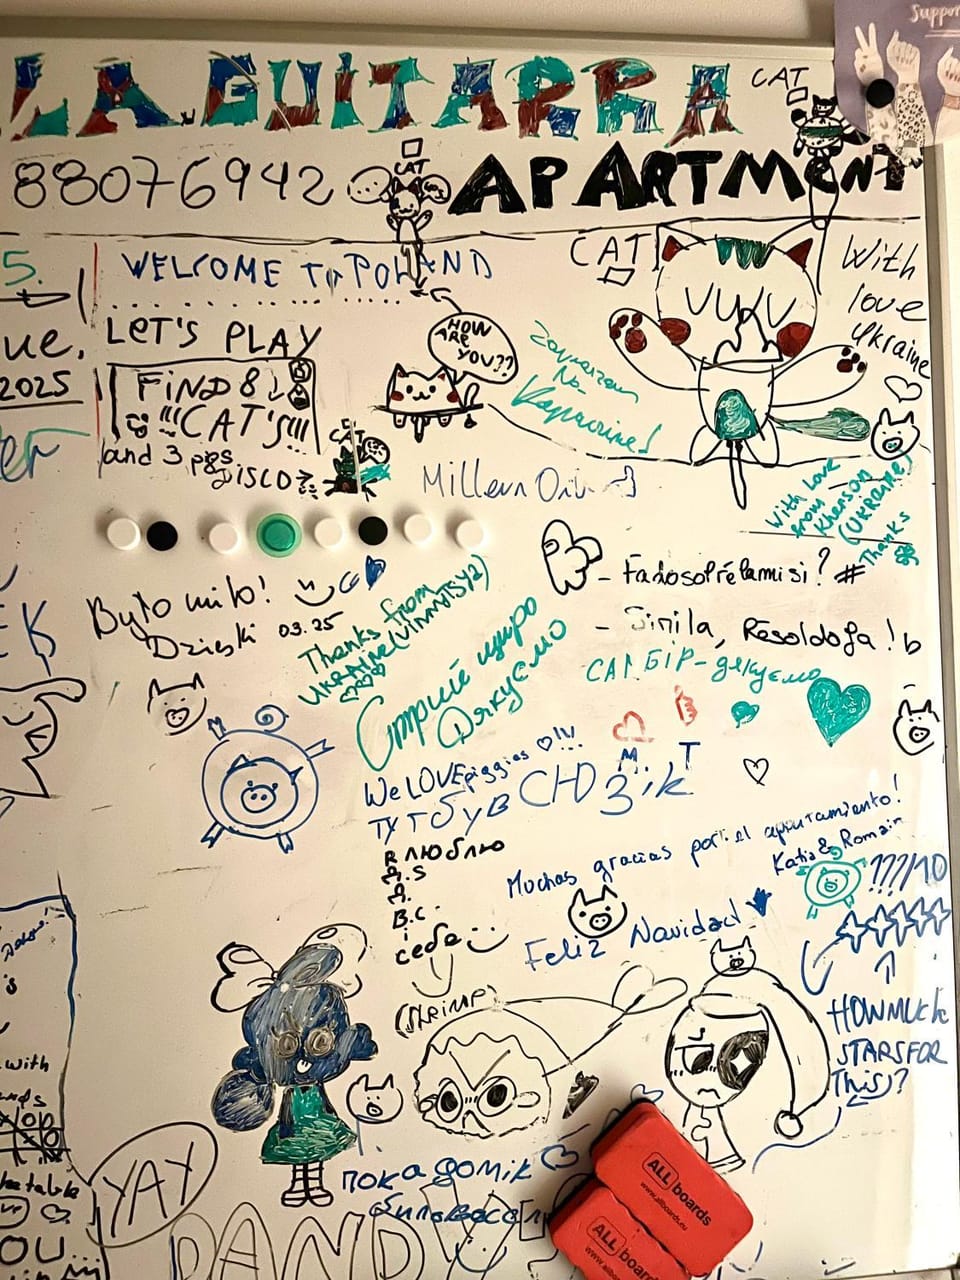 Suppor
LA GUITARRA
CAT
88076942
CAT
APARTMENT
5.
WELCOME To POLAND
CAT
With
love
Ukraine
ue,
LET'S PLAY
HOW
ARE
YOU??
2025
FIND 8
!!!CAT'S!!!
and 3 pigs
DISCO
CAT
Запрошуєм
На
Україне!
er
Millern
With Love
from
Kherson
(UKRAINE)
Thanks
Było miło!
Dzięki 03.25
Thanks from
UKRAINE(VINNYTSYA)
- Fadosolrélamisi? #
- Simila, Résoldofa! b
Стрий щиро
Дякуємо
САМБІР-дякуємо
We LOVE piggies
М. Т
тут був СЮЗік
Я люблю
В.С.
і
себе
Muchas gracias por el apartamiento!
Katia & Romain
???/10
Feliz Navidad!
(SHRIMP)
HOW MUCH
STARS FOR
THIS?
with
YAY
пока домік
OU...
DANDY
ALL boards
www.allboards.eu
ALL boards
www.allboards